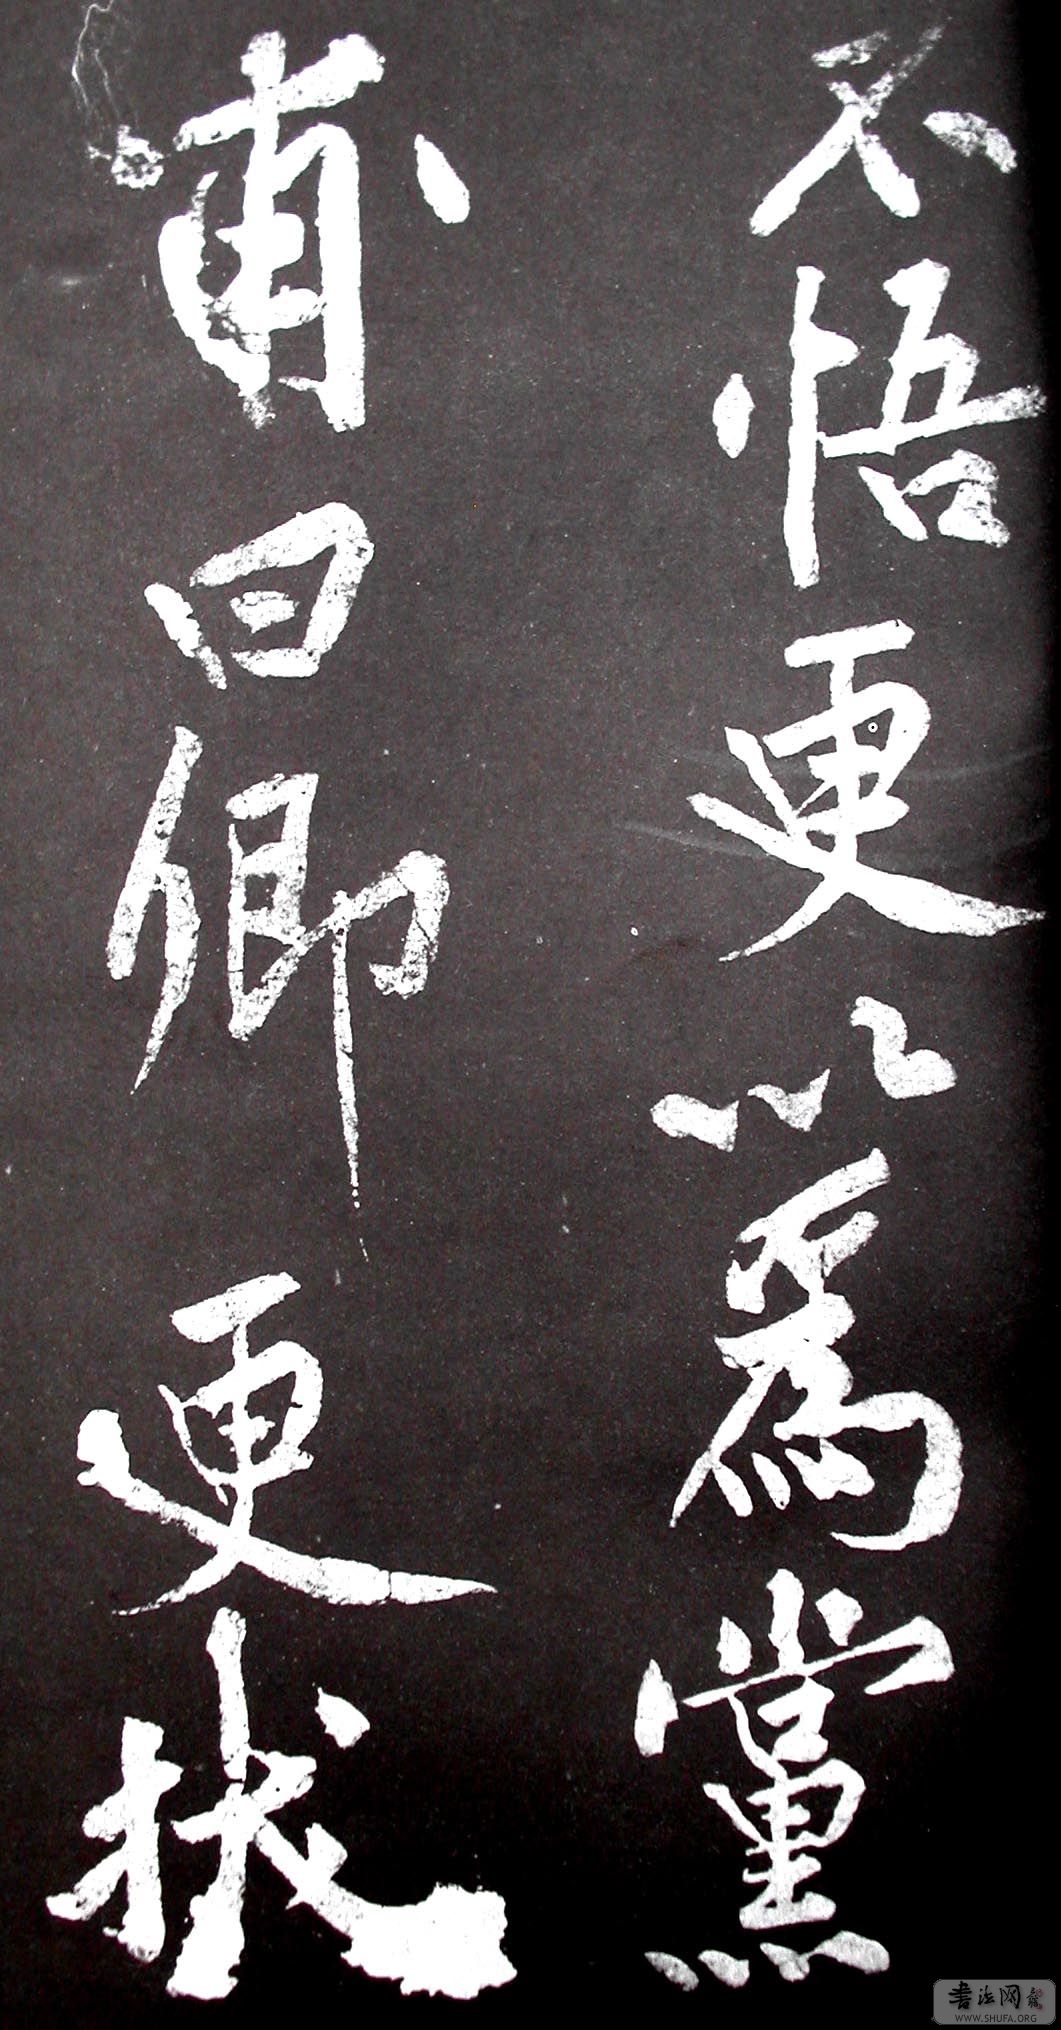 不悟更以爲黨
甫曰卿更拔
書法网
WWW.SHUFA.ORG